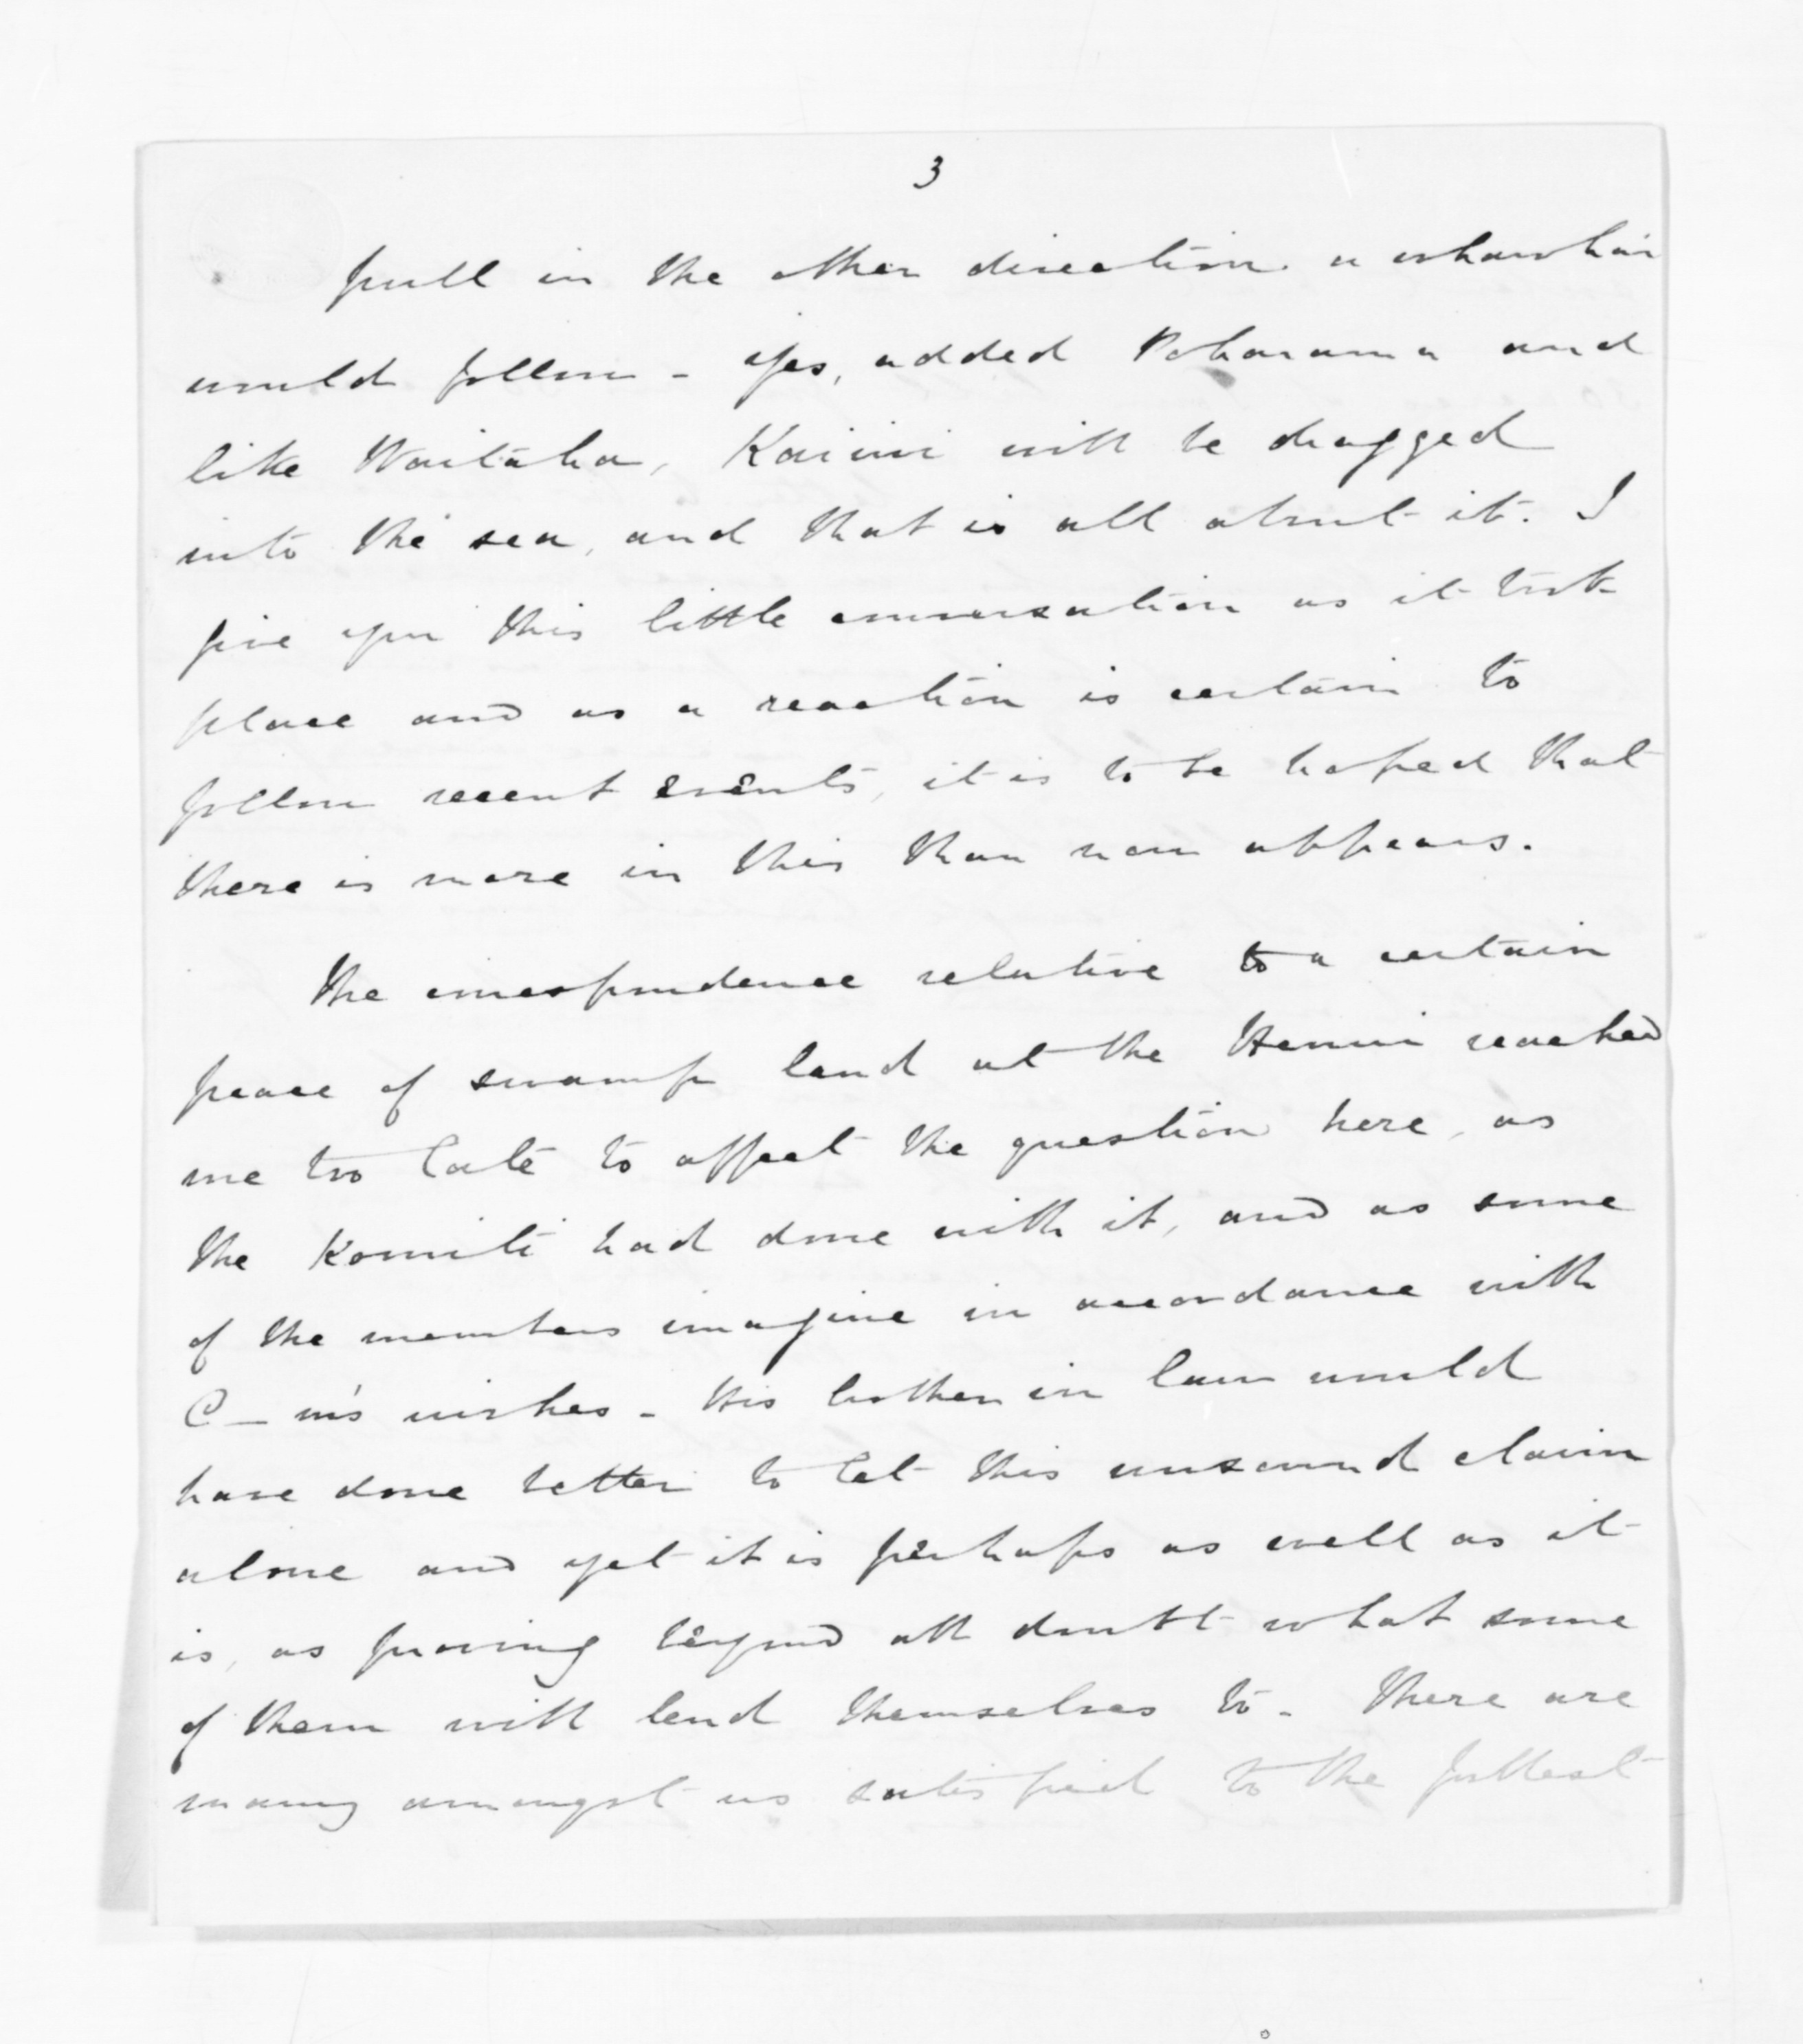 3
pull in the other direction. a whawhai
would follow - Yes, added Poharama and
like Waitaha, Kaiwi will be dragged
into the sea, and that is all about it. I
give you this little conversation as it took
place and as a reaction is certain to
follow recent events, it is to be hoped that
there is more in this than now appears.
The correspondence relative to a certain
peace of swamp land at the Henui reached
me too late to affect the question here, as
the Komiti had done with it, and as some
of the members imagine in accordance with
C - m's wishes - His brother in law would
have done better to let this unsound claim
alone and yet it is perhaps as well as it
is, as proving beyond all doubt what some
of them will lend themselves to - There are
many amongst us satisfied to the fullest